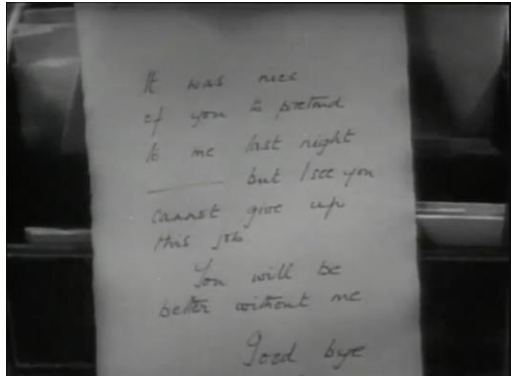 It was nice
of you to pretend
to me last night
——— but I see you
cannot give up
this job.
You will be
better without me
Good bye